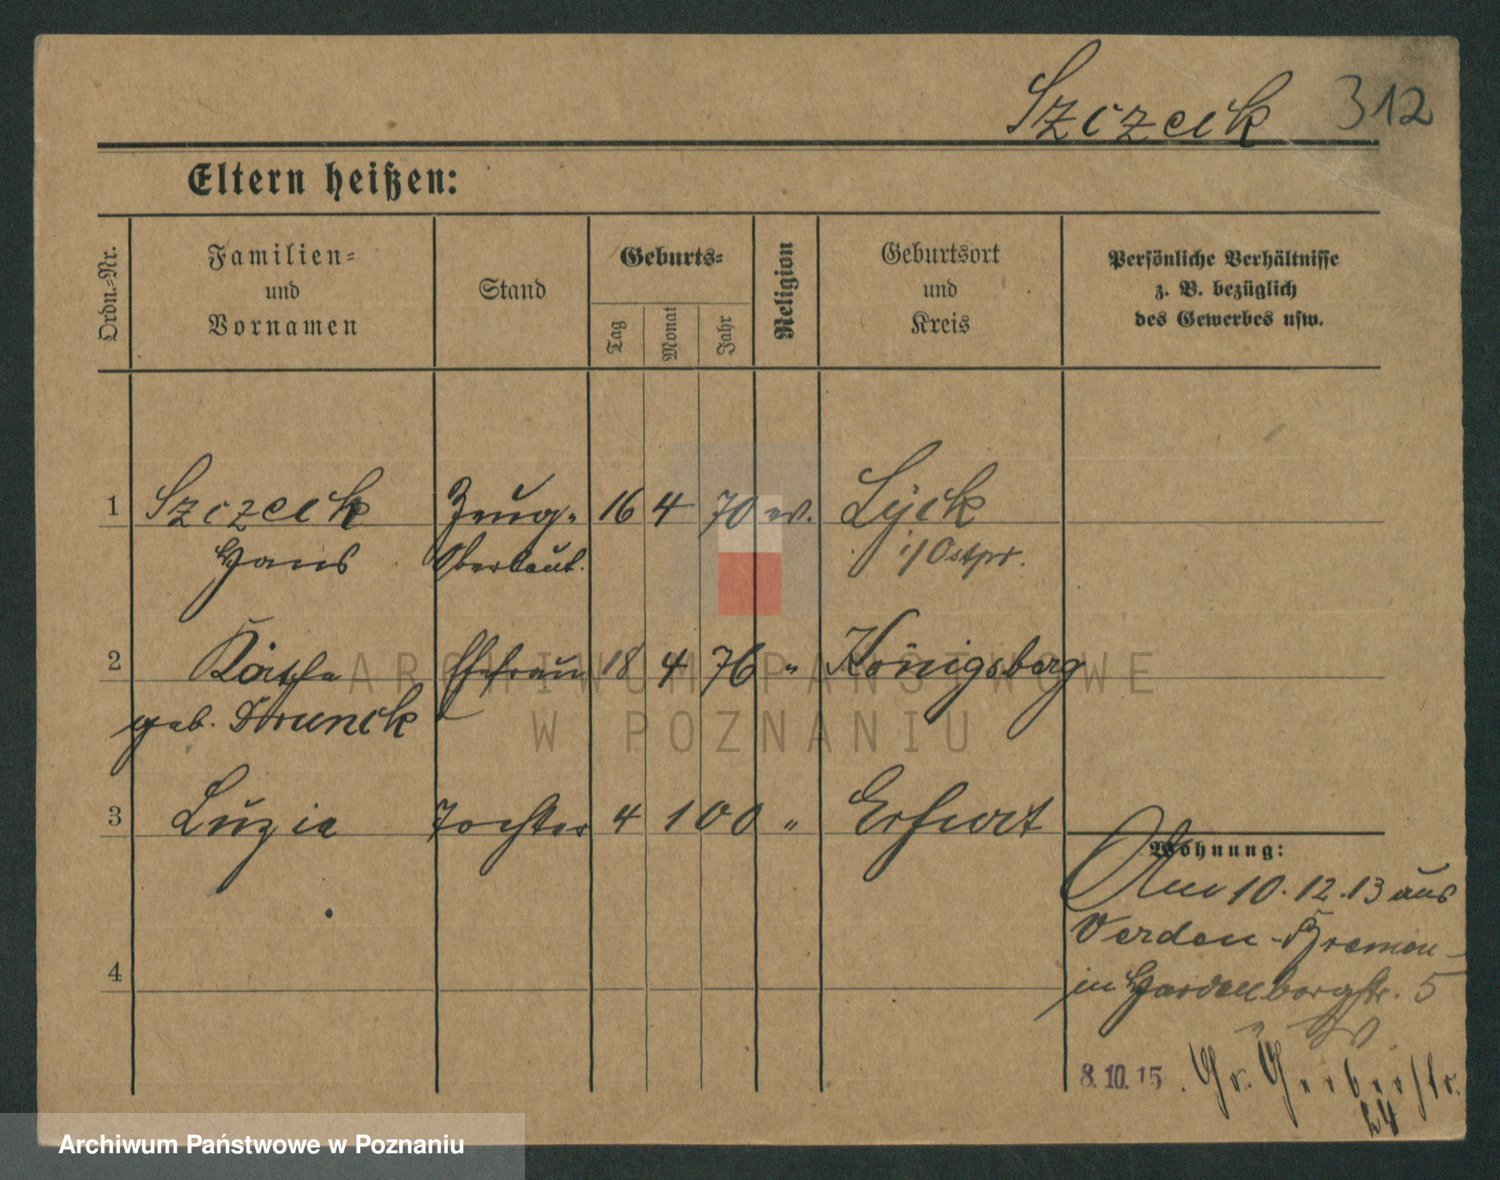 Szczeck 312
Eltern heißen:
Ordn.-Nr.
Familien-
und
Vornamen
Stand
Geburts-
Tag
Monat
Jahr
Religion
Geburtsort
und
Kreis
Persönliche Verhältnisse
z. B. bezüglich
des Gewerbes usw.
1 Szczeck Zeug- 16 4 70 ev. Lyck
Hans Oberleut. i/Ostpr.
2 Käthe Ehefrau 18 4 76 " Königsberg
geb. Drunck
3 Luzie Tochter 4 1 00 " Erfurt
Wohnung:
Am 10.12.13 aus
Verden-Bremen-
in Hardenbergstr. 5
4
8.10.15. Gr. Gerberstr.
24
ARCHIWUM PAŃSTWOWE
W POZNANIU
Archiwum Państwowe w Poznaniu